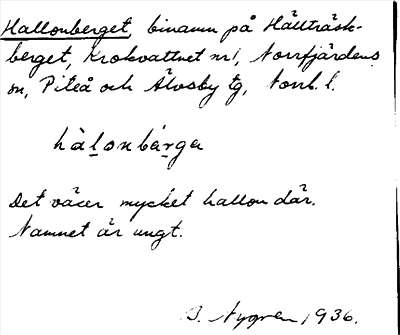 Hallonberget, binamn på Hällträsk-
berget, Krokvattnet nr 1, Norrfjärdens
sn, Piteå och Älvsby tg, Norrb. l.
hàlonbærga
Det växer mycket hallon där.
Namnet är ungt.
J. Nygren 1936.